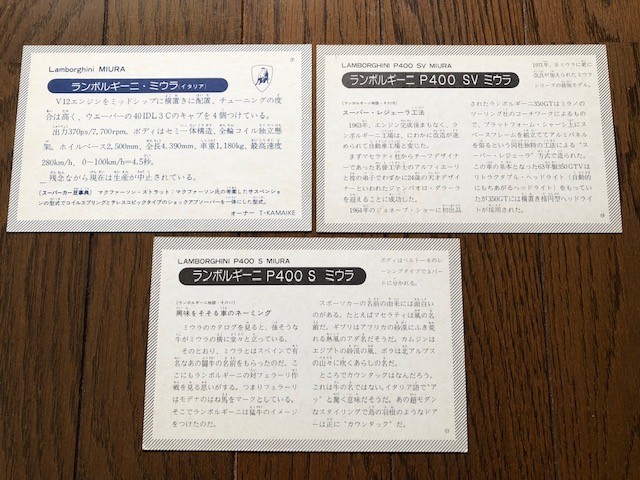 Lamborghini MIURA
ランボルギーニ・ミウラ(イタリア)
V12エンジンをミッドシップに横置きに配置、チューニングの度
合は高く、ウエーバーの40IDL3Cのキャブを4個つけている。
出力370ps/7,700rpm、ボディはセミ一体構造、全輪コイル独立懸
架。ホイルベース2,500mm、全長4.390mm、車重1,180kg、最高速度
280km/h、0〜100km/h=4.5秒。
残念ながら現在は生産が中止されている。
〔スーパーカー豆事典〕マクファーソン・ストラット／マクファーソン氏の考案したサスペンショ
ンの型式でコイルスプリングとテレスコピックタイプのショックアブソーバーを一体にした型式。
オーナー T・KAMAIKE
LAMBORGHINI P400 SV MIURA
ランボルギーニ P400 SV ミウラ
1971年、Sミウラに更に
改良が加えられたミウラ
シリーズの最強モデル。
スーパー・レジェーラ工法
1963年、エンジン完成後まもなく、ラ
ンボルギーニ工場は、にわかに改造が進
められて自動車工場と変じた。
まずマセラティ社からチーフデザイナ
ーであった名骨工学士のアルフィエーリ
と彼の弟子でわずかに24歳の天才デザイ
ナーといわれたジャンパオロ・ダラーラ
を迎えることに成功した。
1964年のジュネーブ・ショーに初出品
されたランボルギーニ350GTはミラノのツ
ーリング社のコーチワークによるもの
で、プラットフォーム・シャーシ上にス
ペースフレームを組立ててアルミパネル
を張るという同社独特の工法による"ス
ーパー・レジェーラ"方式で造られた。
この車の名本となった63年型350GTVは
リトラクタブル・ヘッドライト（自動的
にもちあがるヘッドライト）をもってい
たが350GTには横置き楕円型ヘッドライ
トが採用された。
LAMBORGHINI P400 S MIURA
ランボルギーニ P400 S ミウラ
ボディはベルトーネのレ
ーシングタイプで3パー
トに分かれる。
興味をそそる車のネーミング
ミウラのカタログを見ると、強そうな
牛がミウラの横に堂々と立っている。
そのとおり、ミウラとはスペインで有
名なあの闘牛の名前をもらったのだ。こ
こにもランボルギーニの対フェラーリ作
戦を見る思いがする。つまりフェラーリ
はモデナのはね馬をマークとしている。
そこでランボルギーニは猛牛のイメージ
をつけたのだ。
スポーツカーの名前の由来には面白い
のがある。たとえばマセラティは風の名
前だ。ギブリはアフリカの砂漠にふき荒
れる熱風のアダ名だそうだ。カムジンは
エジプトの砂漠の風。ボラは北アルプス
の山々に吹くあらしの名だ。
ところでカウンタックはなんだろう。
これは牛の名ではない。イタリア語で"ア
ッ"と驚く意味だそうだ。あの超モダン
なスタイリングで鳥の羽根のようなドア
ーは正に"カウンタック"だ。